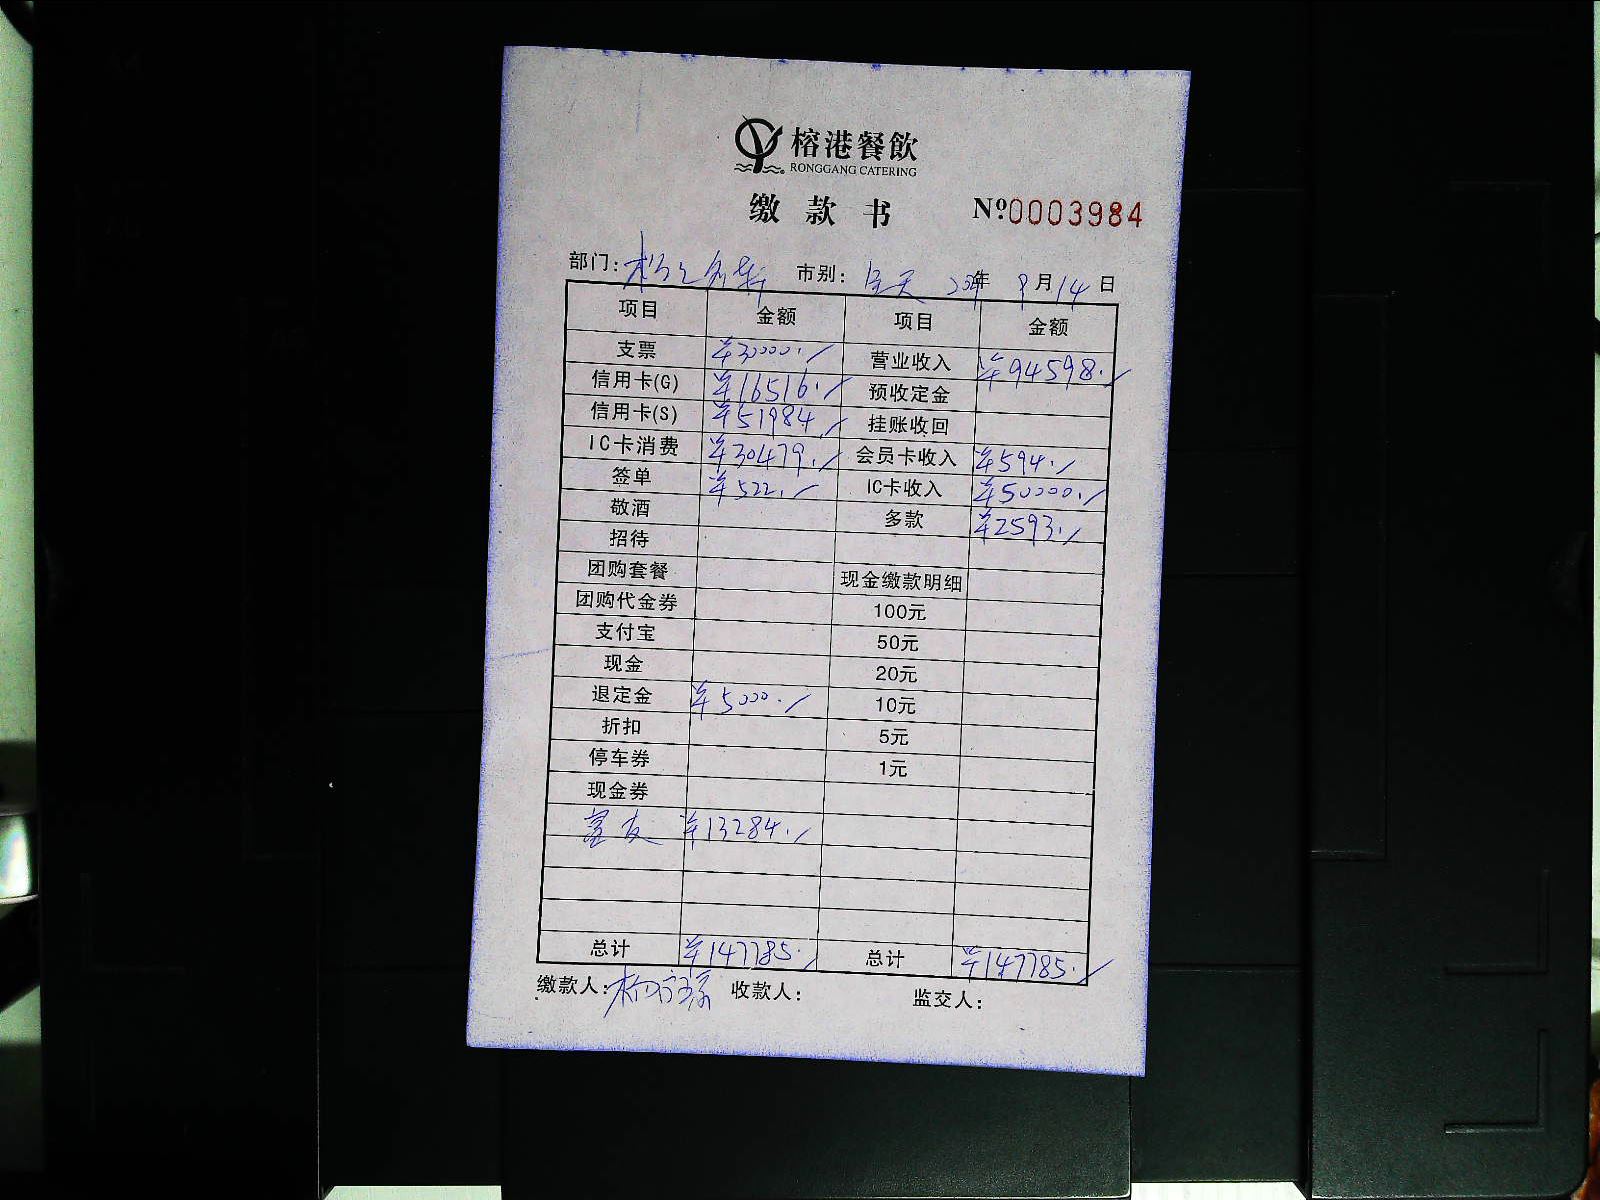 榕港餐飲
RONGGANG CATERING
缴款书 №0003984
部门: 市别: 全天 年 9月14日
项目 金额 项目 金额
支票 ¥30000./ 营业收入 ¥94598./
信用卡(G) ¥16516./ 预收定金
信用卡(S) ¥51984./ 挂账收回
IC卡消费 ¥30479./ 会员卡收入 ¥594./
签单 ¥522./ IC卡收入 ¥50000./
敬酒 多款 ¥2593./
招待
团购套餐 现金缴款明细
团购代金券 100元
支付宝 50元
现金 20元
退定金 ¥5000./ 10元
折扣 5元
停车券 1元
现金券
¥13284./
总计 ¥147785./ 总计 ¥147785./
缴款人: 收款人: 监交人: